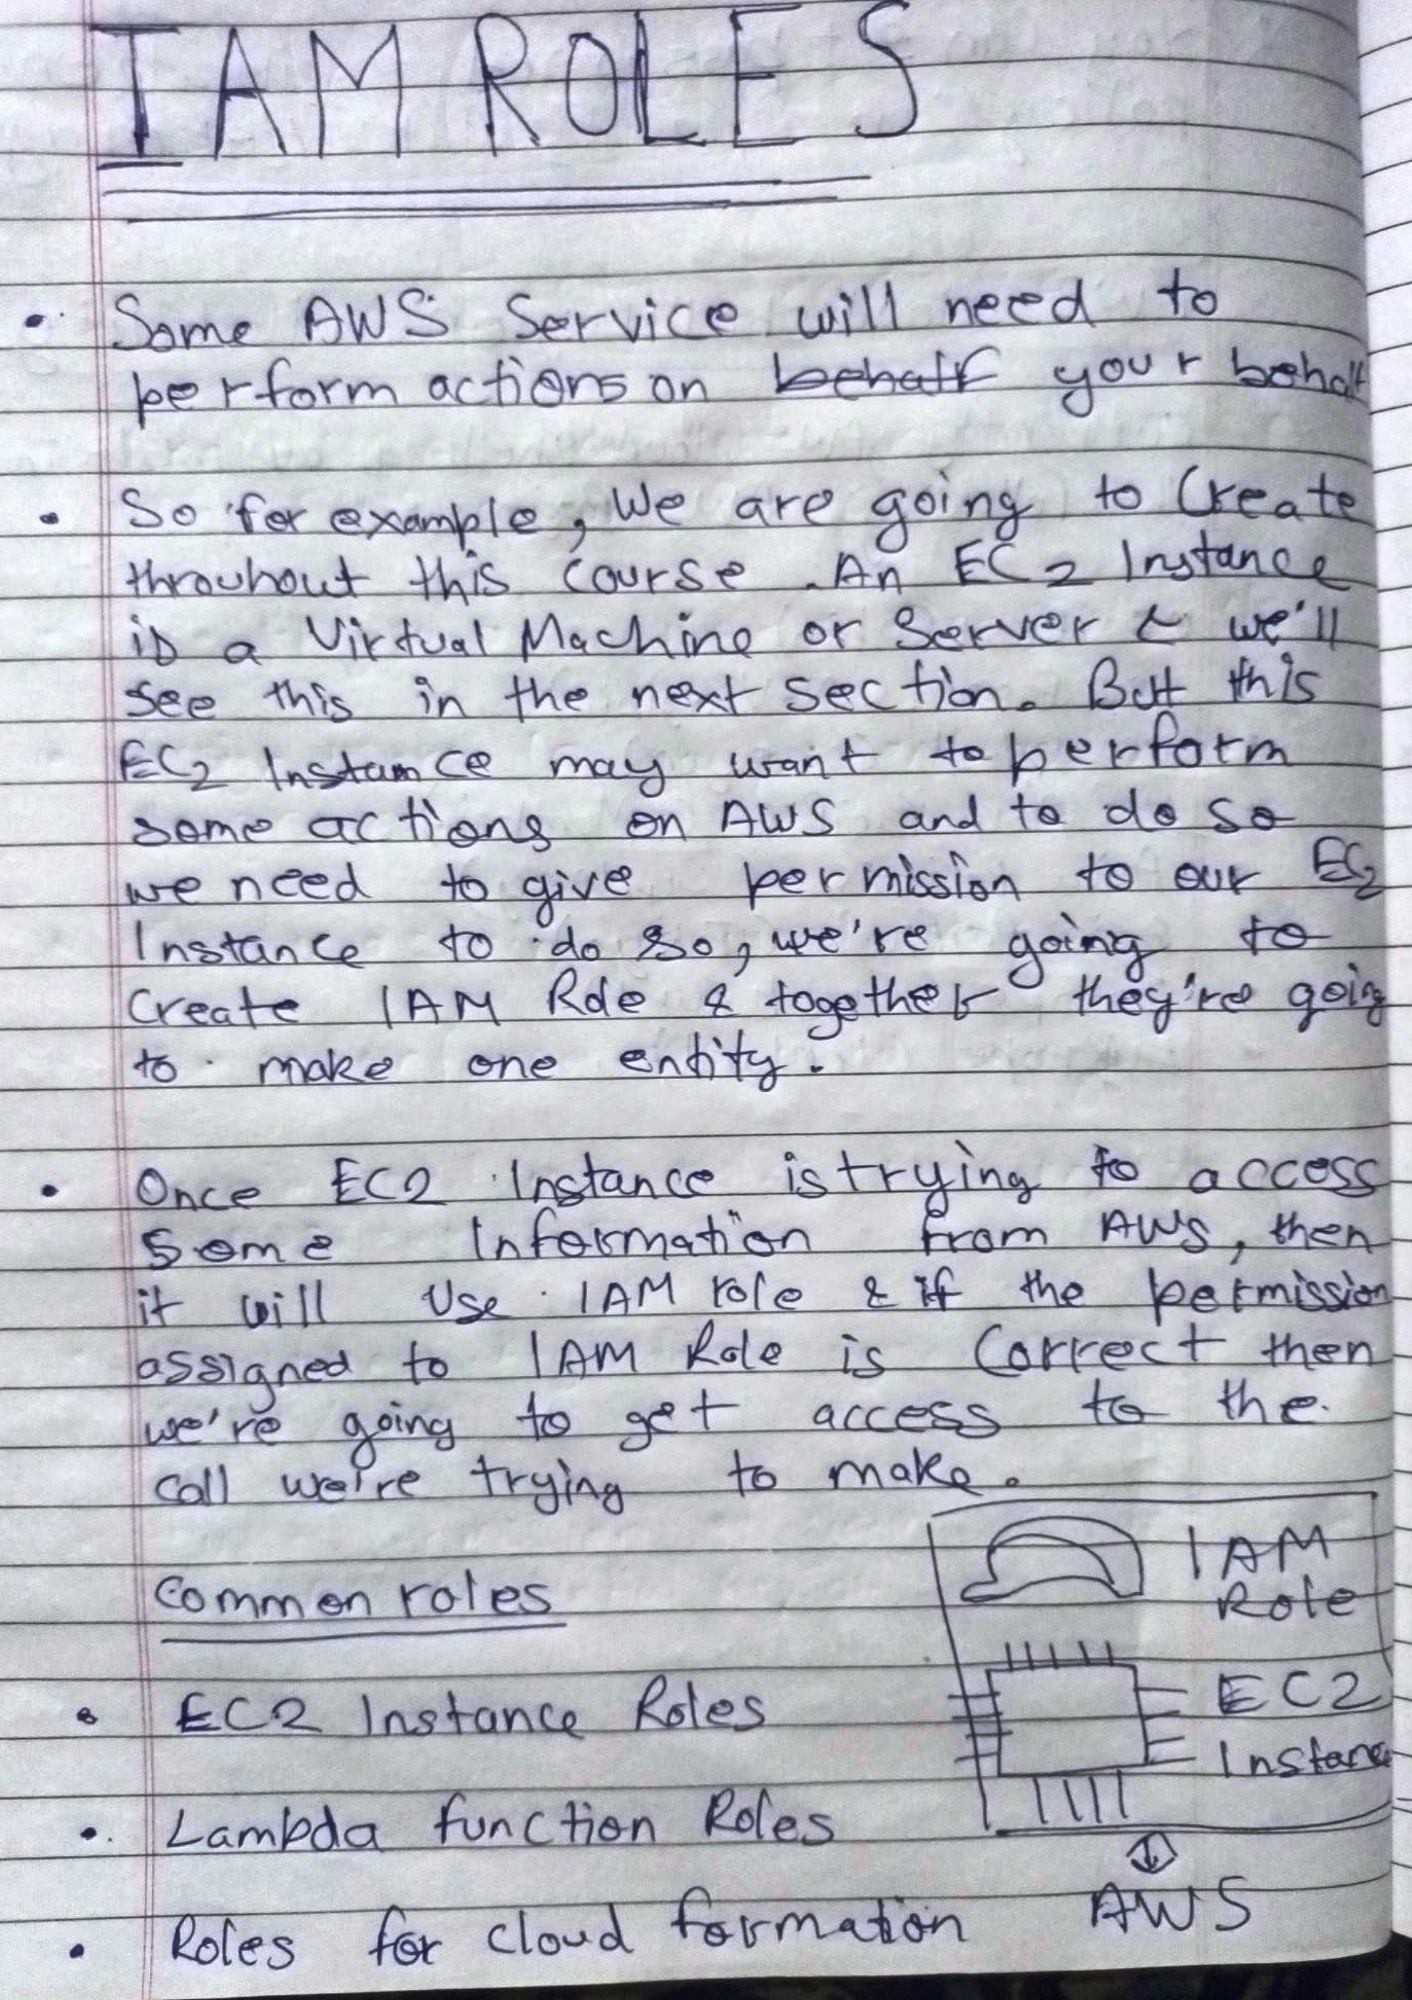 IAM ROLES
• Some AWS Service will need to
perform actions on ~~behalf~~ your behalf
• So for example, we are going to Create
throuhout this course. An EC2 Instance
is a Virtual Machine or Server & we'll
see this in the next section. But this
EC2 Instance may want to perform
some actions on AWS and to do so
we need to give permission to our EC2
Instance to do so, we're going to
Create IAM Role & together they're going
to make one entity.
• Once EC2 Instance is trying to access
Some Information from AWS, then
it will Use IAM role & if the permission
assigned to IAM Role is Correct then
we're going to get access to the
call we're trying to make.
Common roles
• EC2 Instance Roles
• Lambda function Roles
• Roles for cloud formation
IAM
Role
EC2
Instance
AWS